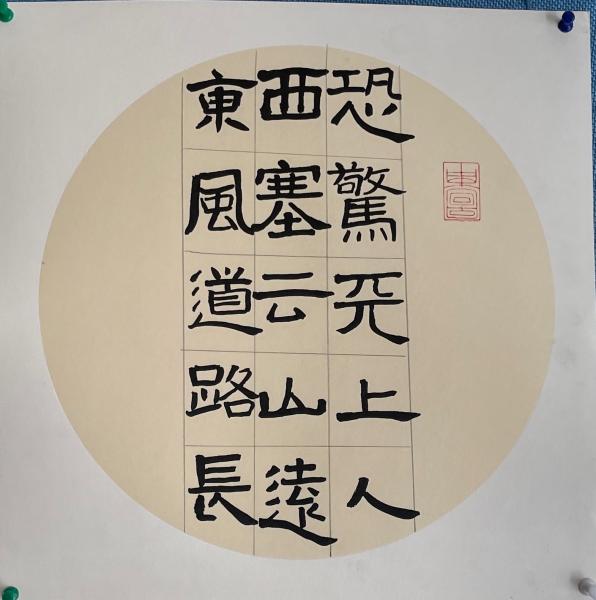 恐驚天上人
西塞云山遠
東風道路長